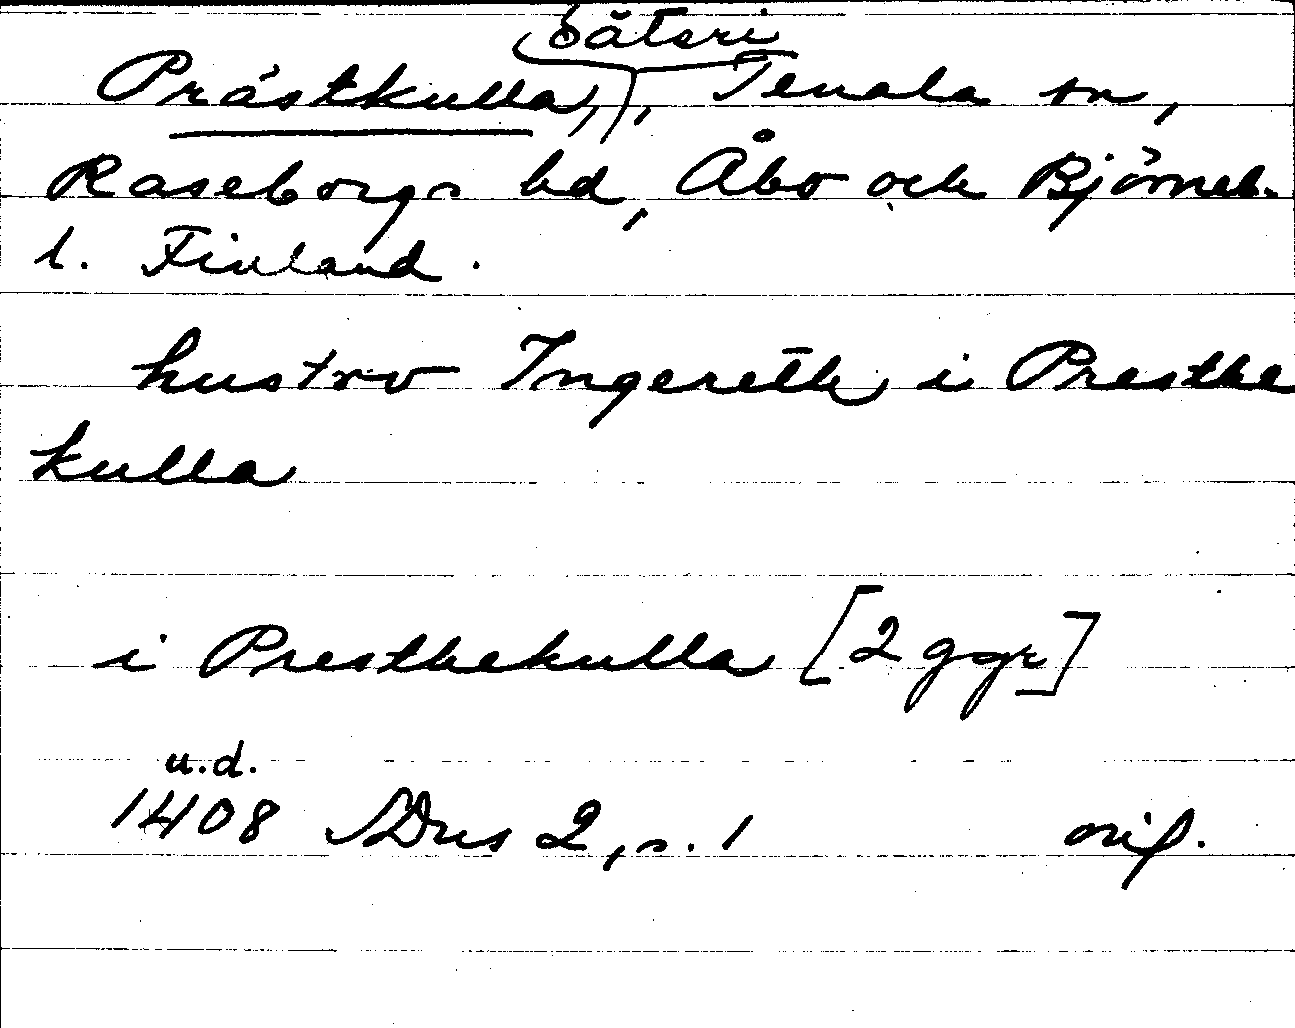 säteri
Prästkulla, , Tenala sn,
Raseborgs hd, Åbo och Björneb.
l. Finland.
hustrv Ingereth i Presthe
kulla
i Presthekulla [2 ggr]
u.d.
1408 SDns 2, s. 1 orig.